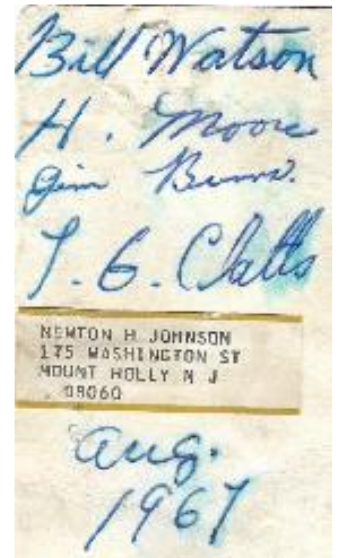 Bill Watson
H. Moore
Jim
T. G. Clatts
NEWTON H JOHNSON
175 WASHINGTON ST
MOUNT HOLLY N J
08060
Aug.
1967